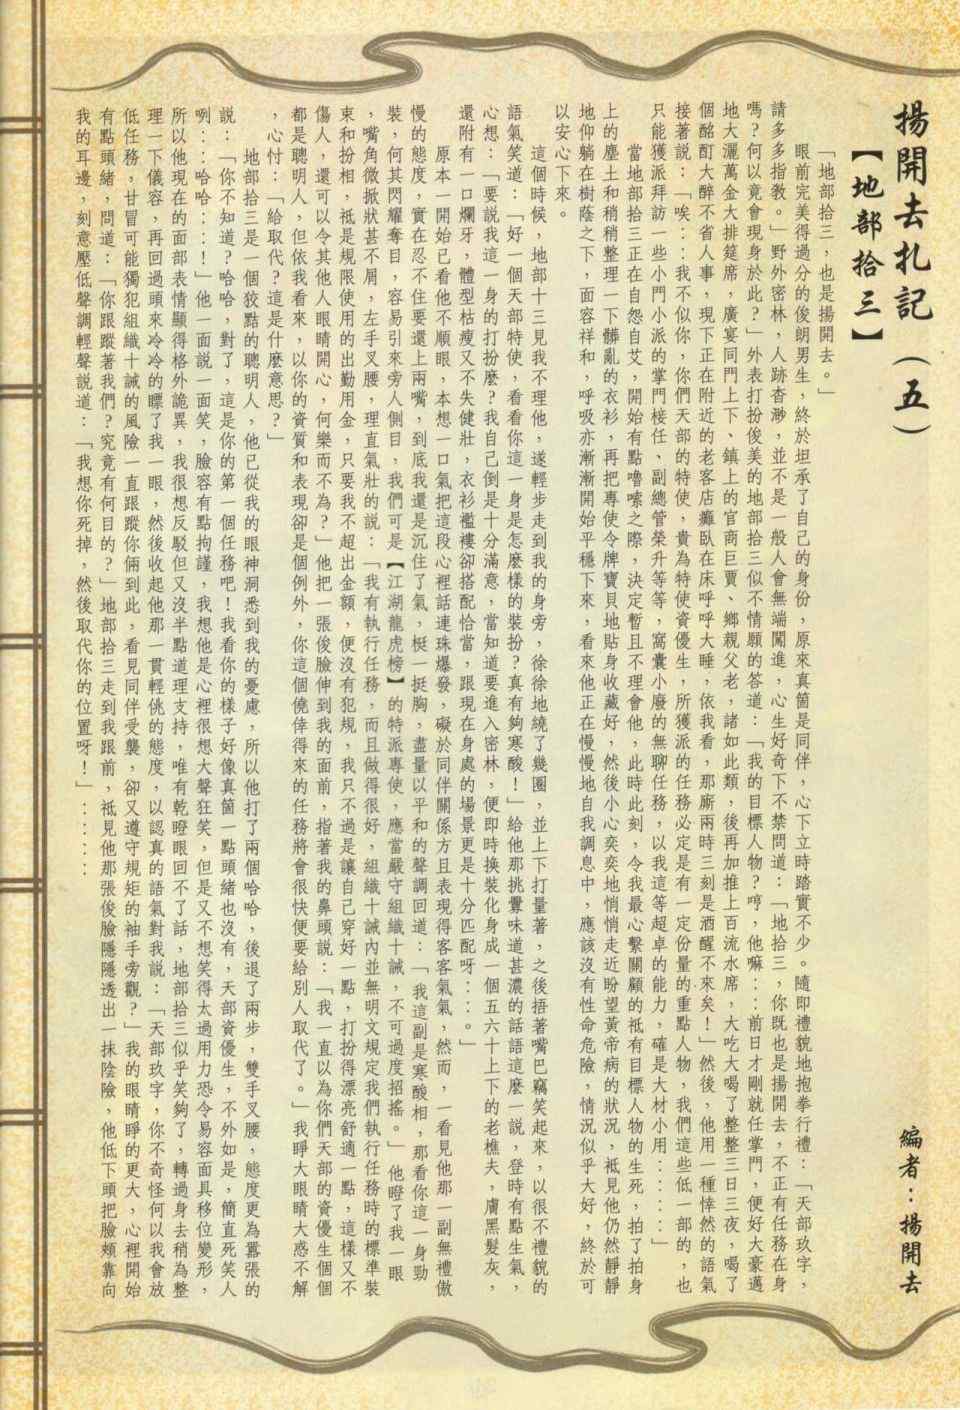 揚開去扎記（五）
編者：揚開去
【地部拾三】
「地部拾三，也是揚開去。」
眼前完美得過分的俊朗男生，終於坦承了自己的身份，原來真箇是同伴，心下立時踏實不少。隨即禮貌地抱拳行禮：「天部玖字，
請多多指教。」野外密林，人跡杳渺，並不是一般人會無端闖進，心生好奇下不禁問道：「地拾三，你既也是揚開去，不正有任務在身
嗎？何以竟會現身於此？」外表打扮俊美的地部拾三似不情願的答道：「我的目標人物？哼，他嘛：：前日才剛就任掌門，便好大豪邁
地大灑萬金大排筵席，廣宴同門上下、鎮上的官商巨賈、鄉親父老，諸如此類，後再加推上百流水席，大吃大喝了整整三日三夜，喝了
個酩酊大醉不省人事，現下正在附近的老客店癱臥在床呼呼大睡，依我看，那廝兩時三刻是酒醒不來矣！」然後，他用一種悻然的語氣
接著說：「唉：：我不似你，你們天部的特使，貴為特使資優生，所獲派的任務必定是有一定份量的重點人物，我們這些低一部的，也
只能獲派拜訪一些小門小派的掌門接任、副總管榮升等等，窩囊小廢的無聊任務，以我這等超卓的能力，確是大材小用：：：：」
當地部拾三正在自怨自艾，開始有點嚕嗦之際，決定暫且不理會他，此時此刻，令我最心繫關顧的祗有目標人物的生死，拍了拍身
上的塵土和稍稍整理一下髒亂的衣衫，再把專使令牌寶貝地貼身收藏好，然後小心奕奕地悄悄走近盼望黃帝病的狀況，祗見他仍然靜靜
地仰躺在樹蔭之下，面容祥和，呼吸亦漸漸開始平穩下來，看來他正在慢慢地自我調息中，應該沒有性命危險，情況似乎大好，終於可
以安心下來。
這個時候，地部十三見我不理他，遂輕步走到我的身旁，徐徐地繞了幾圈，並上下打量著，之後捂著嘴巴竊笑起來，以很不禮貌的
語氣笑道：「好一個天部特使，看看你這一身是怎麼樣的裝扮？真有夠寒酸！」給他那挑釁味道甚濃的話語這麼一說，登時有點生氣，
心想：「要說我這一身的打扮麼？我自己倒是十分滿意，當知道要進入密林，便即時換裝化身成一個五六十上下的老樵夫，膚黑髮灰，
還附有一口爛牙，體型枯瘦又不失健壯，衣衫襤褸卻搭配恰當，跟現在身處的場景更是十分匹配呀：：。」
原本一開始已看他不順眼，本想一口氣把這段心裡話連珠爆發，礙於同伴關係方且表現得客客氣氣，然而，一看見他那一副無禮傲
慢的態度，實在忍不住要還上兩嘴，到底我還是沉住了氣，挺一挺胸，盡量以平和的聲調回道：「我這副是寒酸相，那看你這一身勁
裝，何其閃耀奪目，容易引來旁人側目，我們可是【江湖龍虎榜】的特派專使，應當嚴守組織十誡，不可過度招搖。」他瞪了我一眼
，嘴角微掀狀甚不屑，左手叉腰，理直氣壯的說：「我有執行任務，而且做得很好，組織十誡內並無明文規定我們執行任務時的標準裝
束和扮相，祗是規限使用的出勤用金，只要我不超出金額，便沒有犯規，我只不過是讓自己穿好一點，打扮得漂亮舒適一點，這樣又不
傷人，還可以令其他人眼睛開心，何樂而不為？」他把一張俊臉伸到我的面前，指著我的鼻頭說：「我一直以為你們天部的資優生個個
都是聰明人，但依我看來，以你的資質和表現卻是個例外，你這個僥倖得來的任務將會很快便要給別人取代了。」我睜大眼睛大惑不解
，心忖：「給取代？這是什麼意思？」
地部拾三是一個狡黠的聰明人，他已從我的眼神洞悉到我的憂慮，所以他打了兩個哈哈，後退了兩步，雙手叉腰，態度更為囂張的
說：「你不知道？哈哈，對了，這是你的第一個任務吧！我看你的樣子好像真箇一點頭緒也沒有，天部資優生，不外如是，簡直死笑人
咧：：哈哈：：！」他一面說一面笑，臉容有點拘謹，我想他是心裡很想大聲狂笑，但是又不想笑得太過用力恐令易容面具移位變形，
所以他現在的面部表情顯得格外詭異，我很想反駁但又沒半點道理支持，唯有乾瞪眼回不了話，地部拾三似乎笑夠了，轉過身去稍為整
理一下儀容，再回過頭來冷冷的瞟了我一眼，然後收起他那一貫輕佻的態度，以認真的語氣對我說：「天部玖字，你不奇怪何以我會放
低任務，甘冒可能獨犯組織十誡的風險一直跟蹤你倆到此，看見同伴受襲，卻又遵守規矩的袖手旁觀？」我的眼睛睜的更大，心裡開始
有點頭緒，問道：「你跟蹤著我們？究竟有何目的？」地部拾三走到我跟前，祗見他那張俊臉隱隱透出一抹陰險，他低下頭把臉頰靠向
我的耳邊，刻意壓低聲調輕聲說道：「我想你死掉，然後取代你的位置呀！」：：：：：